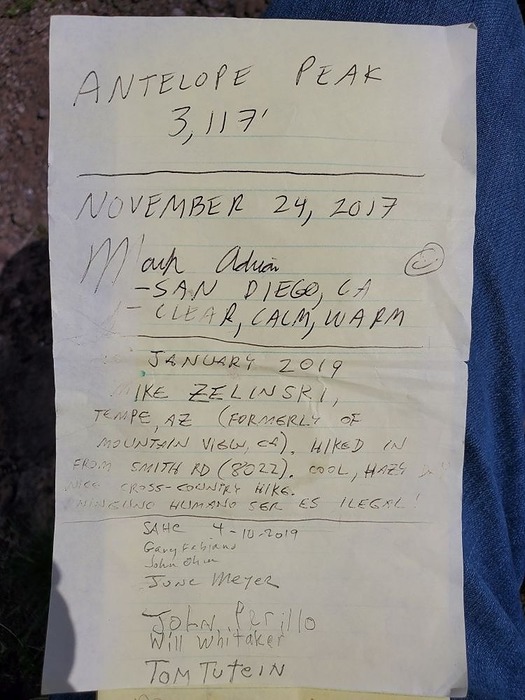 ANTELOPE PEAK
3,117'
NOVEMBER 24, 2017
Mark Adrian
- SAN DIEGO, CA
- CLEAR, CALM, WARM
JANUARY 2019
MIKE ZELINSKI,
TEMPE, AZ (FORMERLY OF
MOUNTAIN VIEW, CA). HIKED IN
FROM SMITH RD (8022). COOL, HAZY
NICE CROSS-COUNTRY HIKE.
NINGUNO HUMANO SER ES ILEGAL!
SAHC 4-10-2019
Gary Fabiano
John
June Meyer
John Perillo
Will Whitaker
TOM TUTEIN